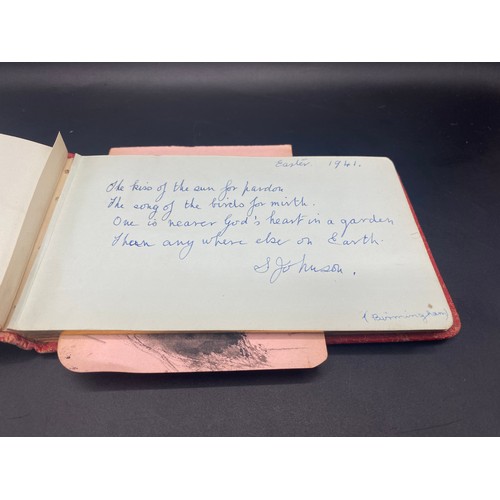 Easter. 1941.
The kiss of the sun for pardon
The song of the birds for mirth.
One is nearer God's heart in a garden
Than any where else on Earth.
S Johnson.
(Birmingham)